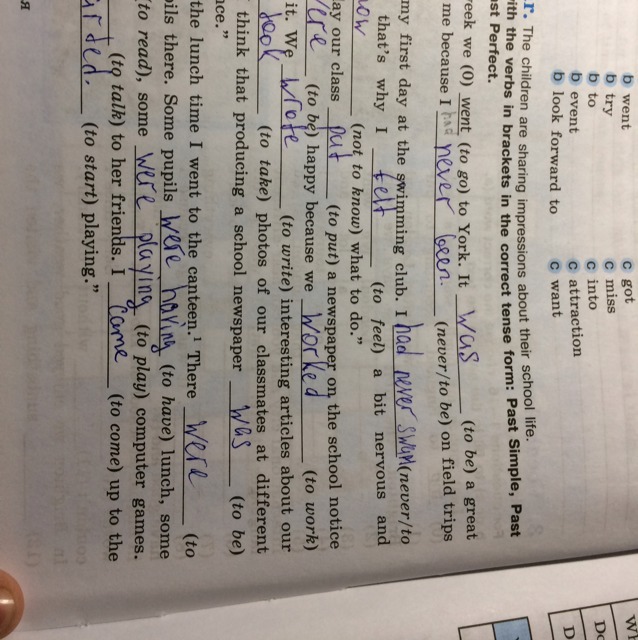 b went c got
b try c miss
b to c into
b event c attraction
b look forward to c want
r. The children are sharing impressions about their school life.
with the verbs in brackets in the correct tense form: Past Simple, Past
st Perfect.
eek we (0) went (to go) to York. It was (to be) a great
me because I had never been. (never/to be) on field trips
my first day at the swimming club. I had never swam (never/to
that's why I felt (to feel) a bit nervous and
now (not to know) what to do.”
ay our class put (to put) a newspaper on the school notice
ere (to be) happy because we worked (to work)
it. We wrote (to write) interesting articles about our
took (to take) photos of our classmates at different
think that producing a school newspaper was (to be)
nce.”
the lunch time I went to the canteen.¹ There were (to
pils there. Some pupils were having (to have) lunch, some
(to read), some were playing (to play) computer games.
(to talk) to her friends. I came (to come) up to the
arted. (to start) playing.”